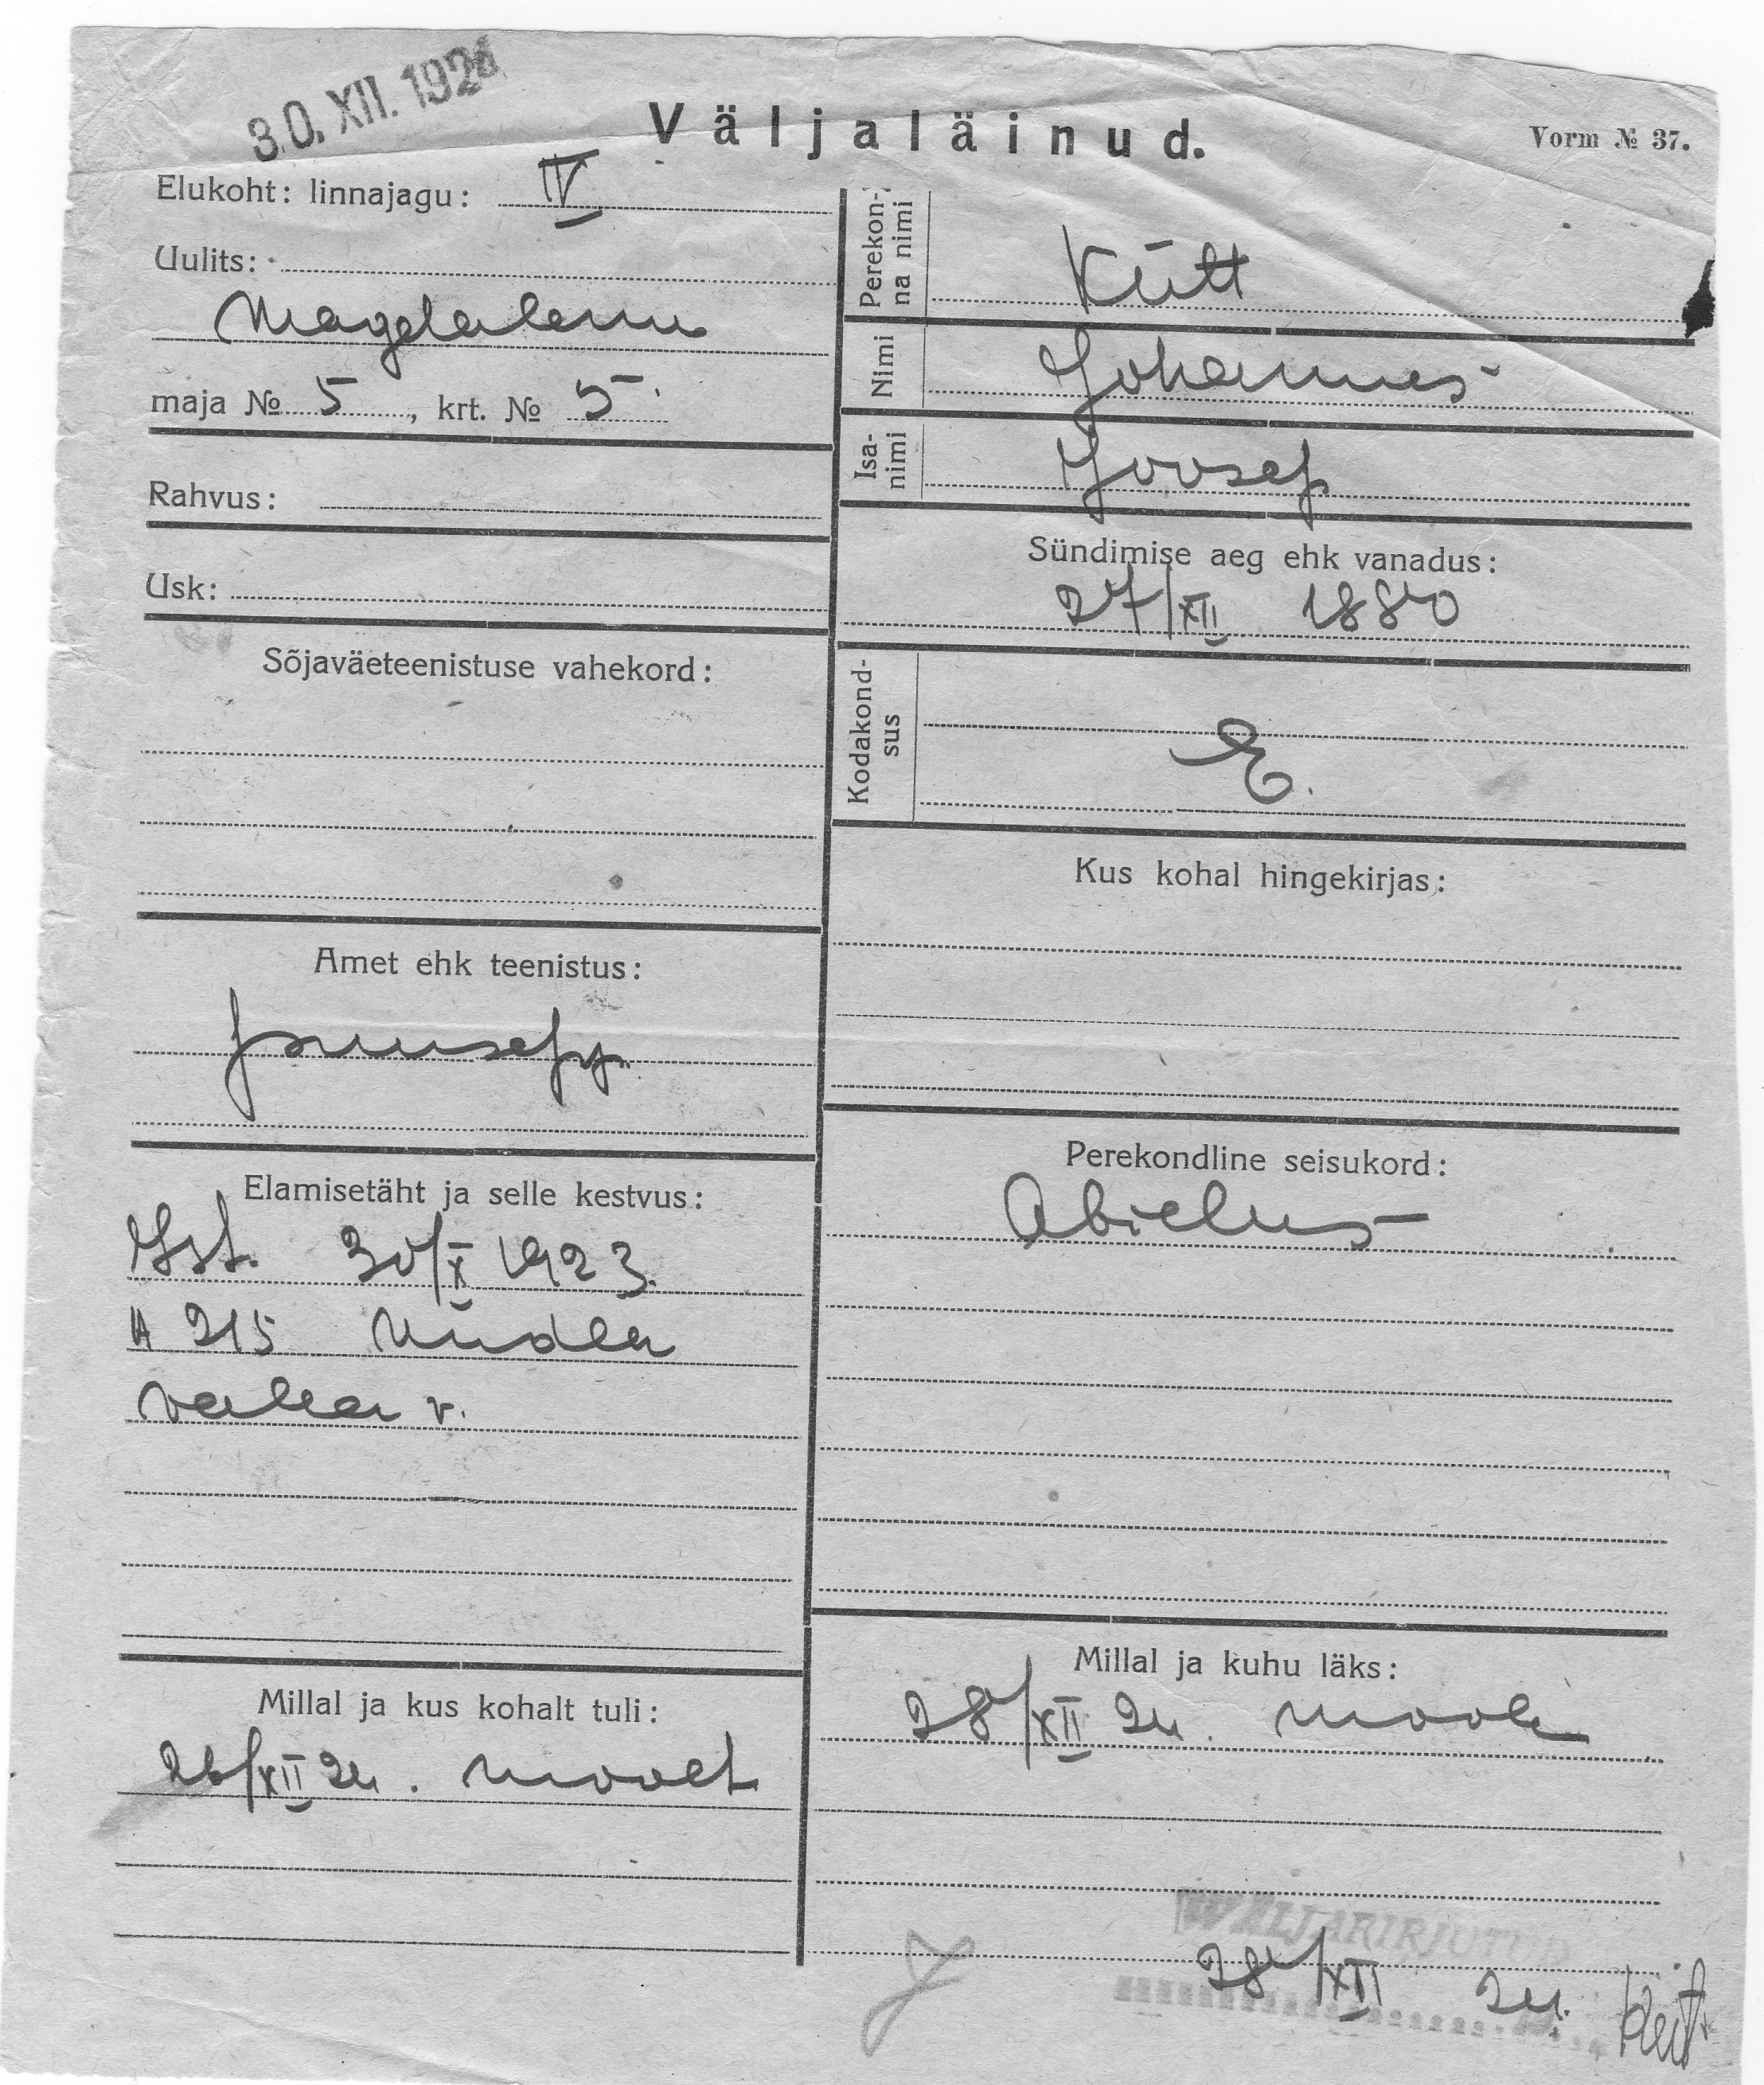 30. XII. 1924
Väljaläinud.
Vorm № 37.
Elukoht: linnajagu: IV
Uulits:
Magdaleena
maja № 5, krt. № 5
Rahvus:
Usk:
Sõjaväeteenistuse vahekord:
Amet ehk teenistus:
Elamisetäht ja selle kestvus:
Ist. 30/X 1923.
№ 215
valla v.
Millal ja kus kohalt tuli:
26/XII 24. maalt
Perekon-
na nimi
Kütt
Nimi
Johannes
Isa-
nimi
Joosep
Sündimise aeg ehk vanadus:
27/XII 1880
Kodakond-
sus
E.
Kus kohal hingekirjas:
Perekondline seisukord:
Abielus
Millal ja kuhu läks:
28/XII 24. maale
WÄLJAKIRJUTUD
28/XII 24.